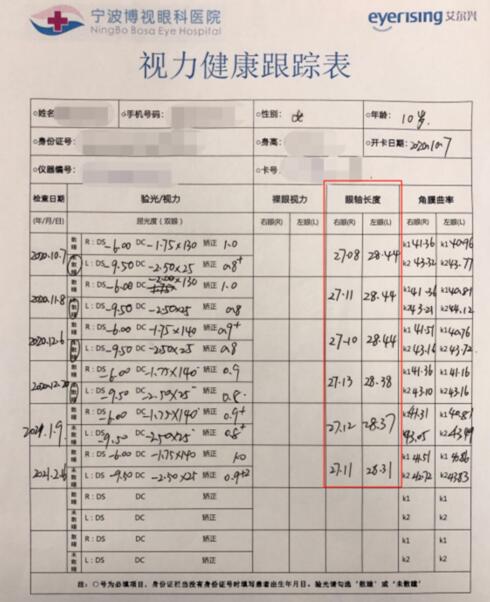 宁波博视眼科医院
NingBo Bosa Eye Hospital
eyerising 艾尔兴
视力健康跟踪表
○姓名 ○手机号码: ○性别: ○年龄: 10岁
○身份证号: ○身高: ○开卡日期: 2020.10.7
○仪器编号: ○卡号
检查日期 验光/视力 裸眼视力 眼轴长度 角膜曲率
(年/月/日) 屈光度(双眼) 右眼(R) 左眼(L) 右眼(R) 左眼(L) 右眼(R) 左眼(L)
2020.10.7 散瞳 未散瞳 R:DS -6.00 DC -1.75×130 矫正 1.0 27.08 28.44 k1 41.36 k1 40.96
L:DS -9.50 DC -2.50×25 矫正 0.8+ k2 43.32 k2 43.77
2020.11.8 散瞳 未散瞳 R:DS -6.00 DC -2.00×130 矫正 1.0 27.11 28.44 k1 41.36 k1 40.81
L:DS -9.50 DC -2.50×25 矫正 0.8 k2 43.21 k2 44.12
2020.12.6 散瞳 未散瞳 R:DS -6.00 DC -1.75×140 矫正 0.9+ 27.10 28.44 k1 41.51 k1 40.76
L:DS -9.50 DC -2.50×25 矫正 0.8 k2 43.16 k2 43.72
2020.12.20 散瞳 未散瞳 R:DS -6.00 DC -1.75×140° 矫正 0.9 27.13 28.38 k1 41.36 k1 41.16
L:DS -9.50 DC -2.50×25° 矫正 0.8 k2 43.10 k2 43.16
2021.1.9 散瞳 未散瞳 R:DS -6.00 DC -1.75×140° 矫正 0.9+ 27.12 28.37 k1 41.31 k1 40.81
L:DS -9.50 DC -2.50×25° 矫正 0.8+ 43.05 k2 43.99
2021.2.6 散瞳 未散瞳 R:DS -6.00 DC -1.75×140 矫正 1.0 27.11 28.31 k1 41.51 k1 40.86
L:DS -9.50 DC -2.50×25 矫正 0.9+2 k2 42.72 k2 43.83
散瞳 未散瞳 R:DS DC 矫正 k1 k1
L:DS DC 矫正 k2 k2
散瞳 未散瞳 R:DS DC 矫正 k1 k1
L:DS DC 矫正 k2 k2
注:○号为必填项目、身份证栏当没有身份证号时填写患者出生年月日、验光请勾选“散瞳”或“未散瞳”